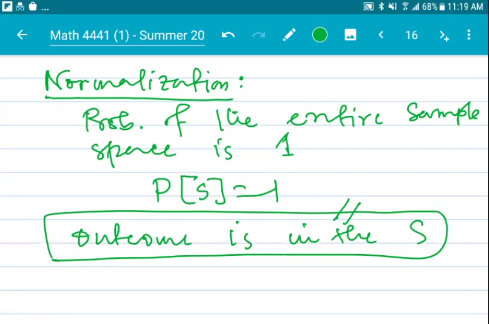 68% 11:19 AM
Math 4441 (1) - Summer 20 16
Normalization:
Prob. of the entire sample
space is 1
P[S]=1
Outcome is in the S